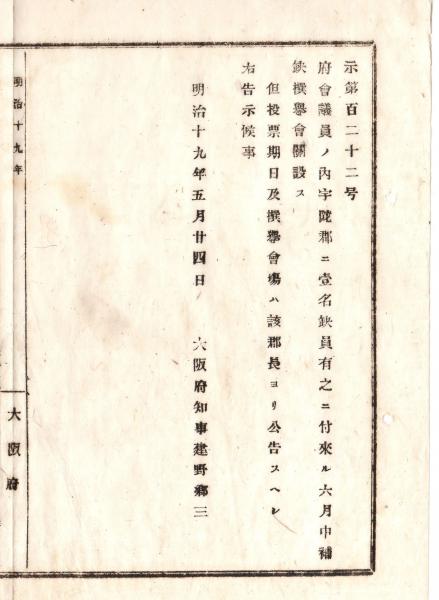 示第百二十二号
府會議員ノ內宇陀郡ニ壹名缺員有之ニ付來ル六月中補
缺撰擧會開設ス
但投票期日及撰擧會塲ハ該郡長ヨリ公告スヘシ
右告示候事
明治十九年五月廿四日 大阪府知事建野鄕三
明治十九年
大阪府